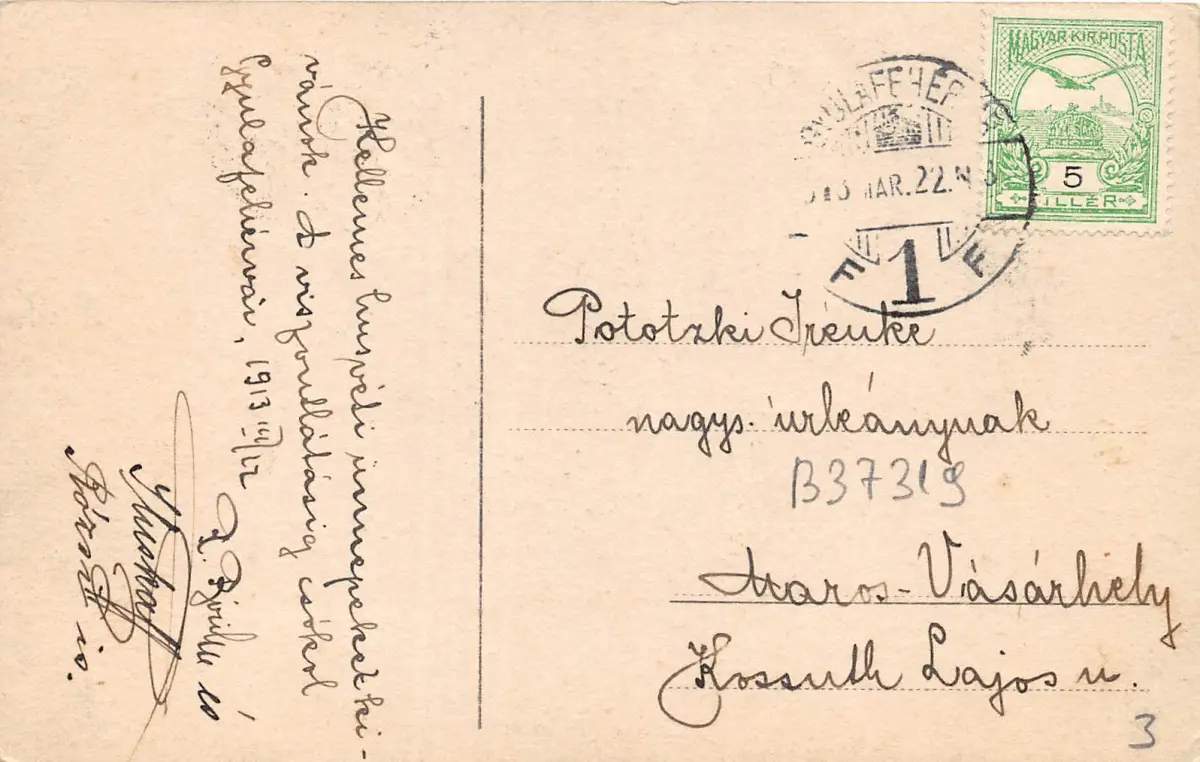 Kellemes husvéti ünnepeket ki-
vánok. A viszontlátásig csókol
Gyulafehérvár, 1913 III/22
és
is.
MAGYAR KIR. POSTA
5
FILLÉR
GYULAFEHÉR
913 MAR. 22. N
F 1 F
Pototzki Irénke
nagys. úrleánynak
B37319
Maros-Vásárhely
Kossuth Lajos u.
3